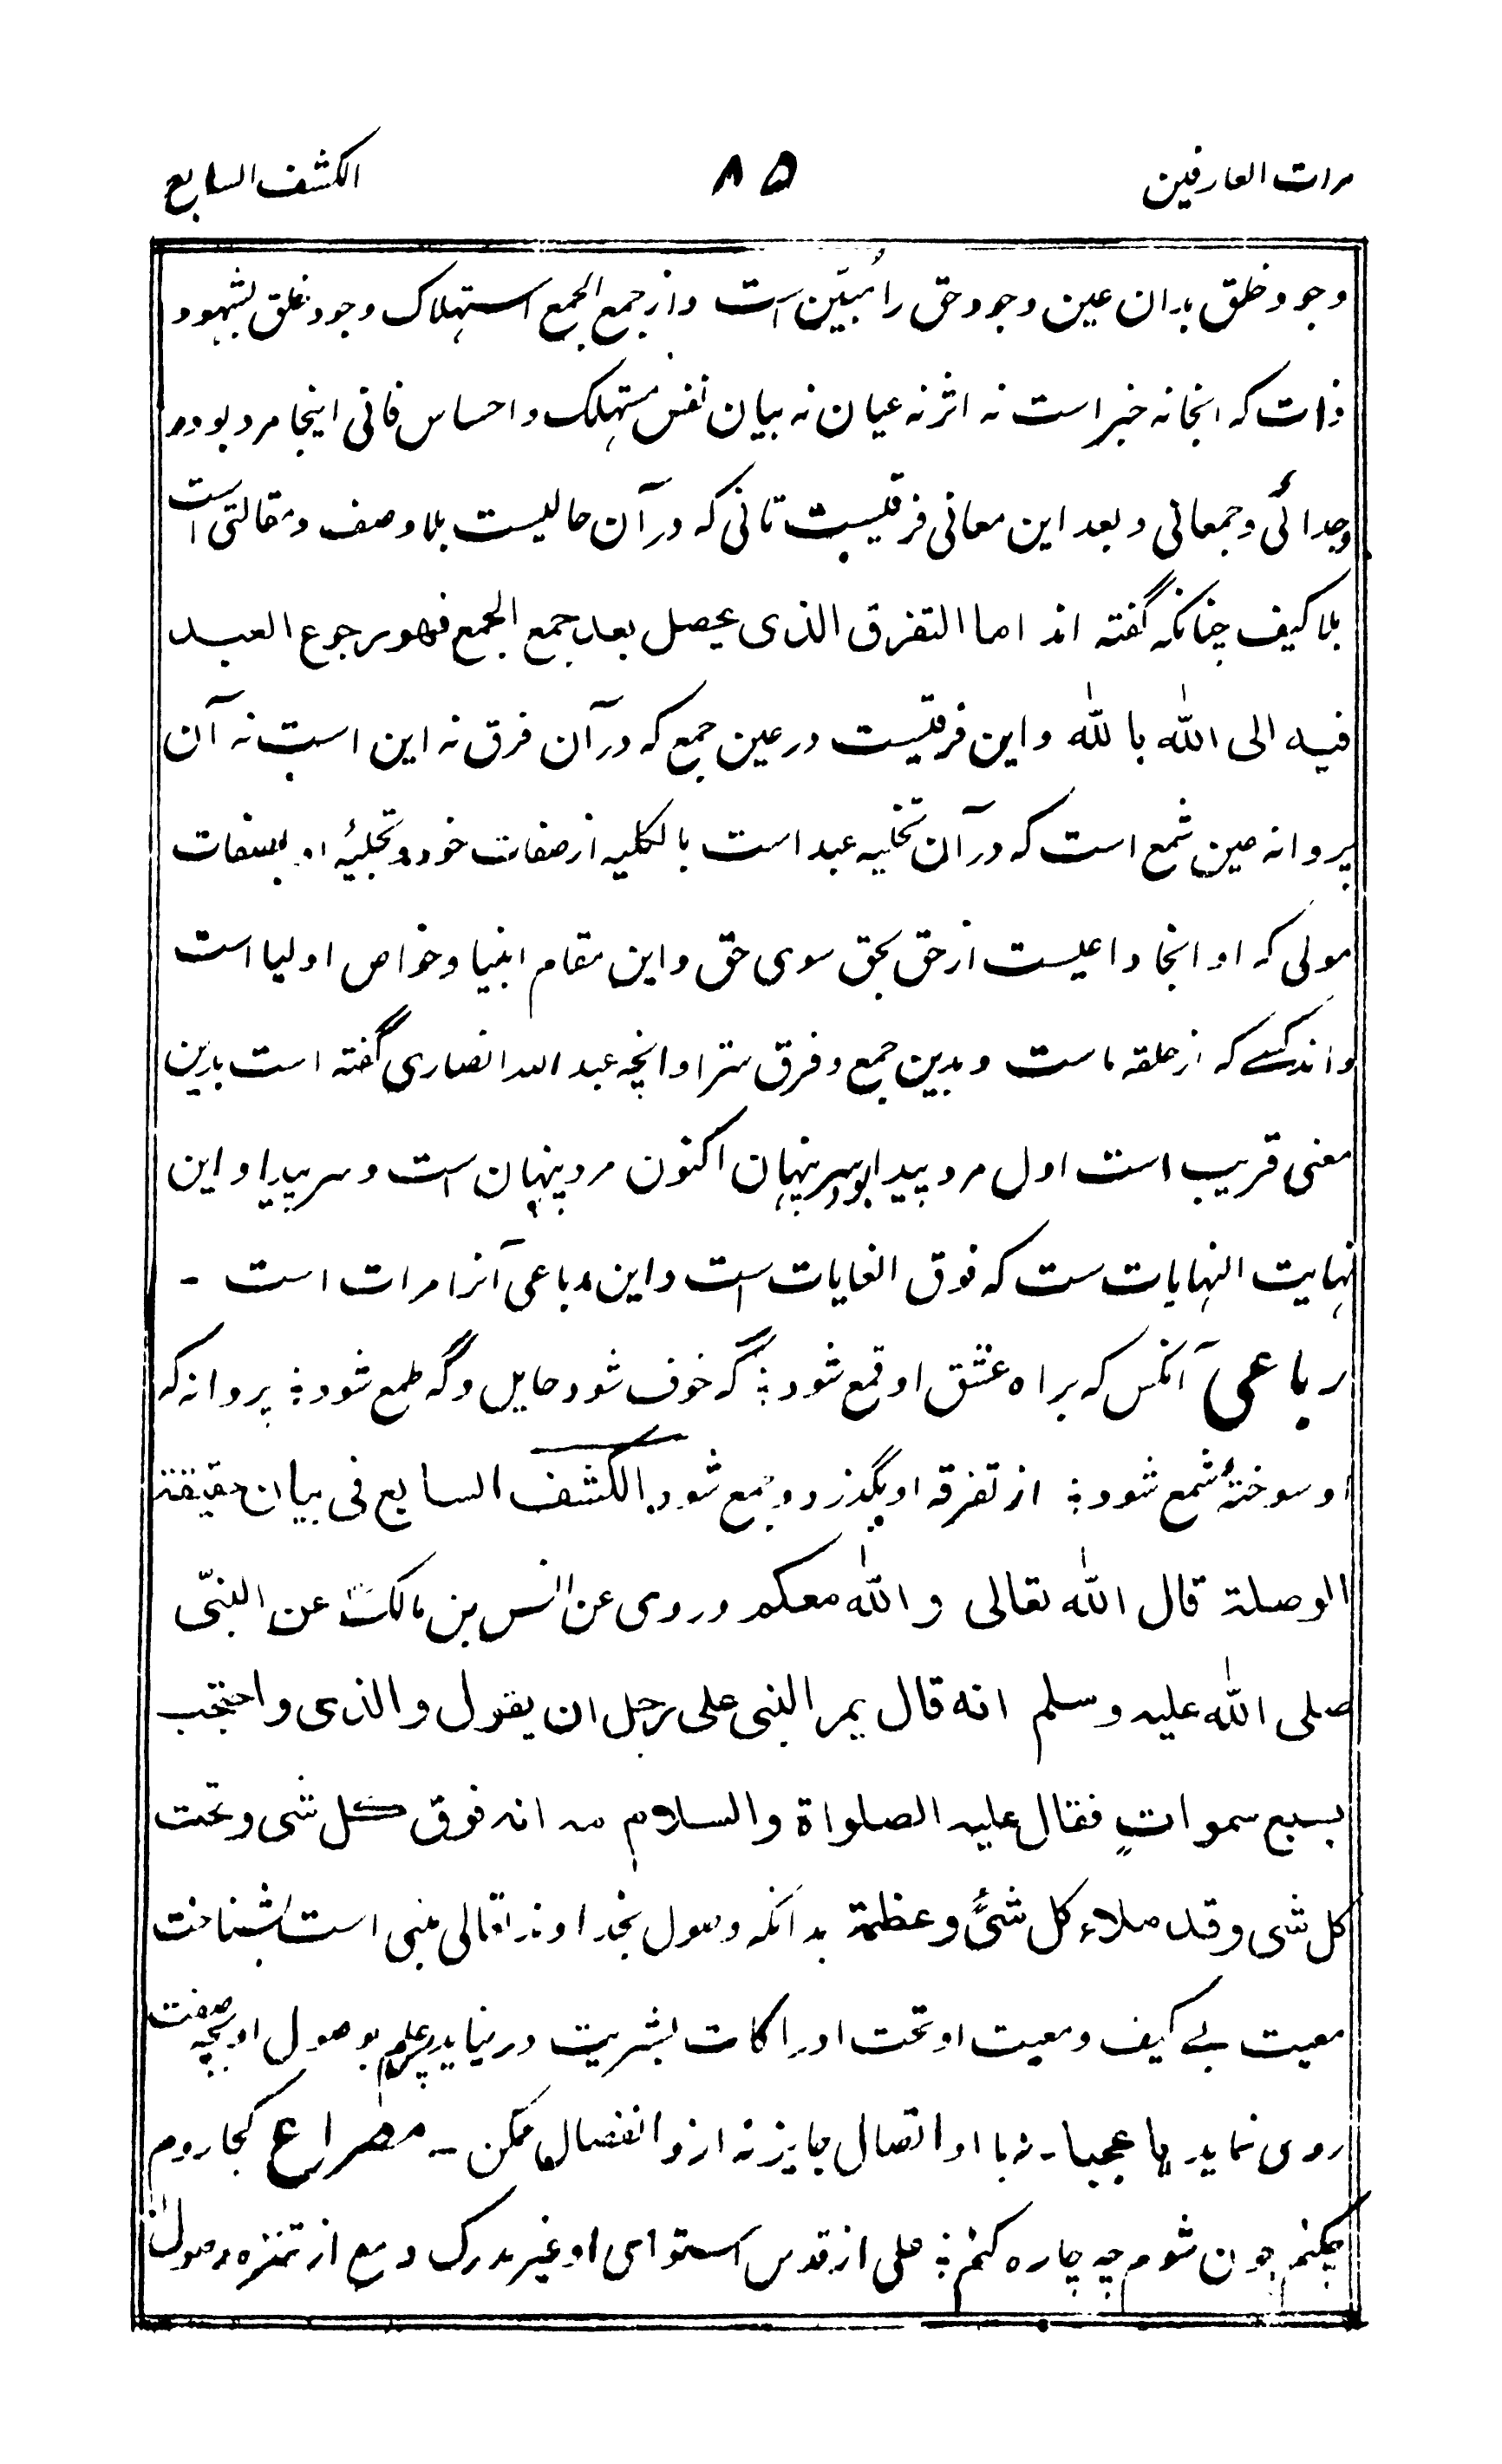 مرات العارفین ۸۵ الکشف السابع
وجود خلق بدان عین وجود حق را مُبیّن است و از جمع الجمع استهلاک وجود خلق بشهود
ذات که انجا نه خبر است نه اثر نه عیان نه بیان نفس مستهلک و احساس فانی اینجا مرد بود در
وجدائی و جمعانی و بعد این معانی فرقیست ثانی که در آن حالیست بلا وصف و مقالتی است
بلا کیف چنانکه گفته اند اما التفرق الذی یحصل بعد جمع الجمع فهو رجوع العبد
فیه الی الله بالله و این فرقیست در عین جمع که در آن فرق نه این است نه آن
پروانه عین شمع است که در آن تخلیه عبد است بالکلیه از صفات خود و تجلیهٔ او بصفات
مولی که او انجا داعیست از حق بحق سوی حق و این مقام انبیا و خواص اولیا است
داند کسے که از حلقه ماست و بدین جمع و فرق سترا و انچه عبد الله انصاری گفته است بدین
معنی قریب است اول مرد پیدا بود سر پنهان اکنون مرد پنهان است و سر پیدا و این
نهایت النهایات ست که فوق الغایات است و این رباعی آنرا مرات است -
رباعی آنکس که براه عشق او قمع شود ؛ گه خوف شود حایل و گه طمع شود ؛ پروانه که
او سوختهٔ شمع شود ؛ از تفرقه او بگذرد و جمع شود الکشف السابع فی بیان حقیقة
الوصلة قال الله تعالی و الله معکم و روی عن انس بن مالک عن النبیّ
صلی الله علیه وسلم انه قال یمر النبی علی رجل ان یقول والذی واحتجب
بسبع سموات فقال علیه الصلواة والسلام مه انه فوق کل شی و تحت
کل شی وقد ملاء کل شیٔ وعظمة بدانکه وصول بخداوند تعالی مبنی است بشناخت
معیت بے کیف و معیت او تحت ادراکات بشریت در نیاید پس علم بوصول او بچه صفت
روی نماید یا عجبا - نه با او اتصال جایز نه ازو انفصال ممکن - مصراع کجا روم
چکنم چون شوم چه چاره کنم ؛ علی از قدس استوای او غیر مدرک و مع از تنزه وصول